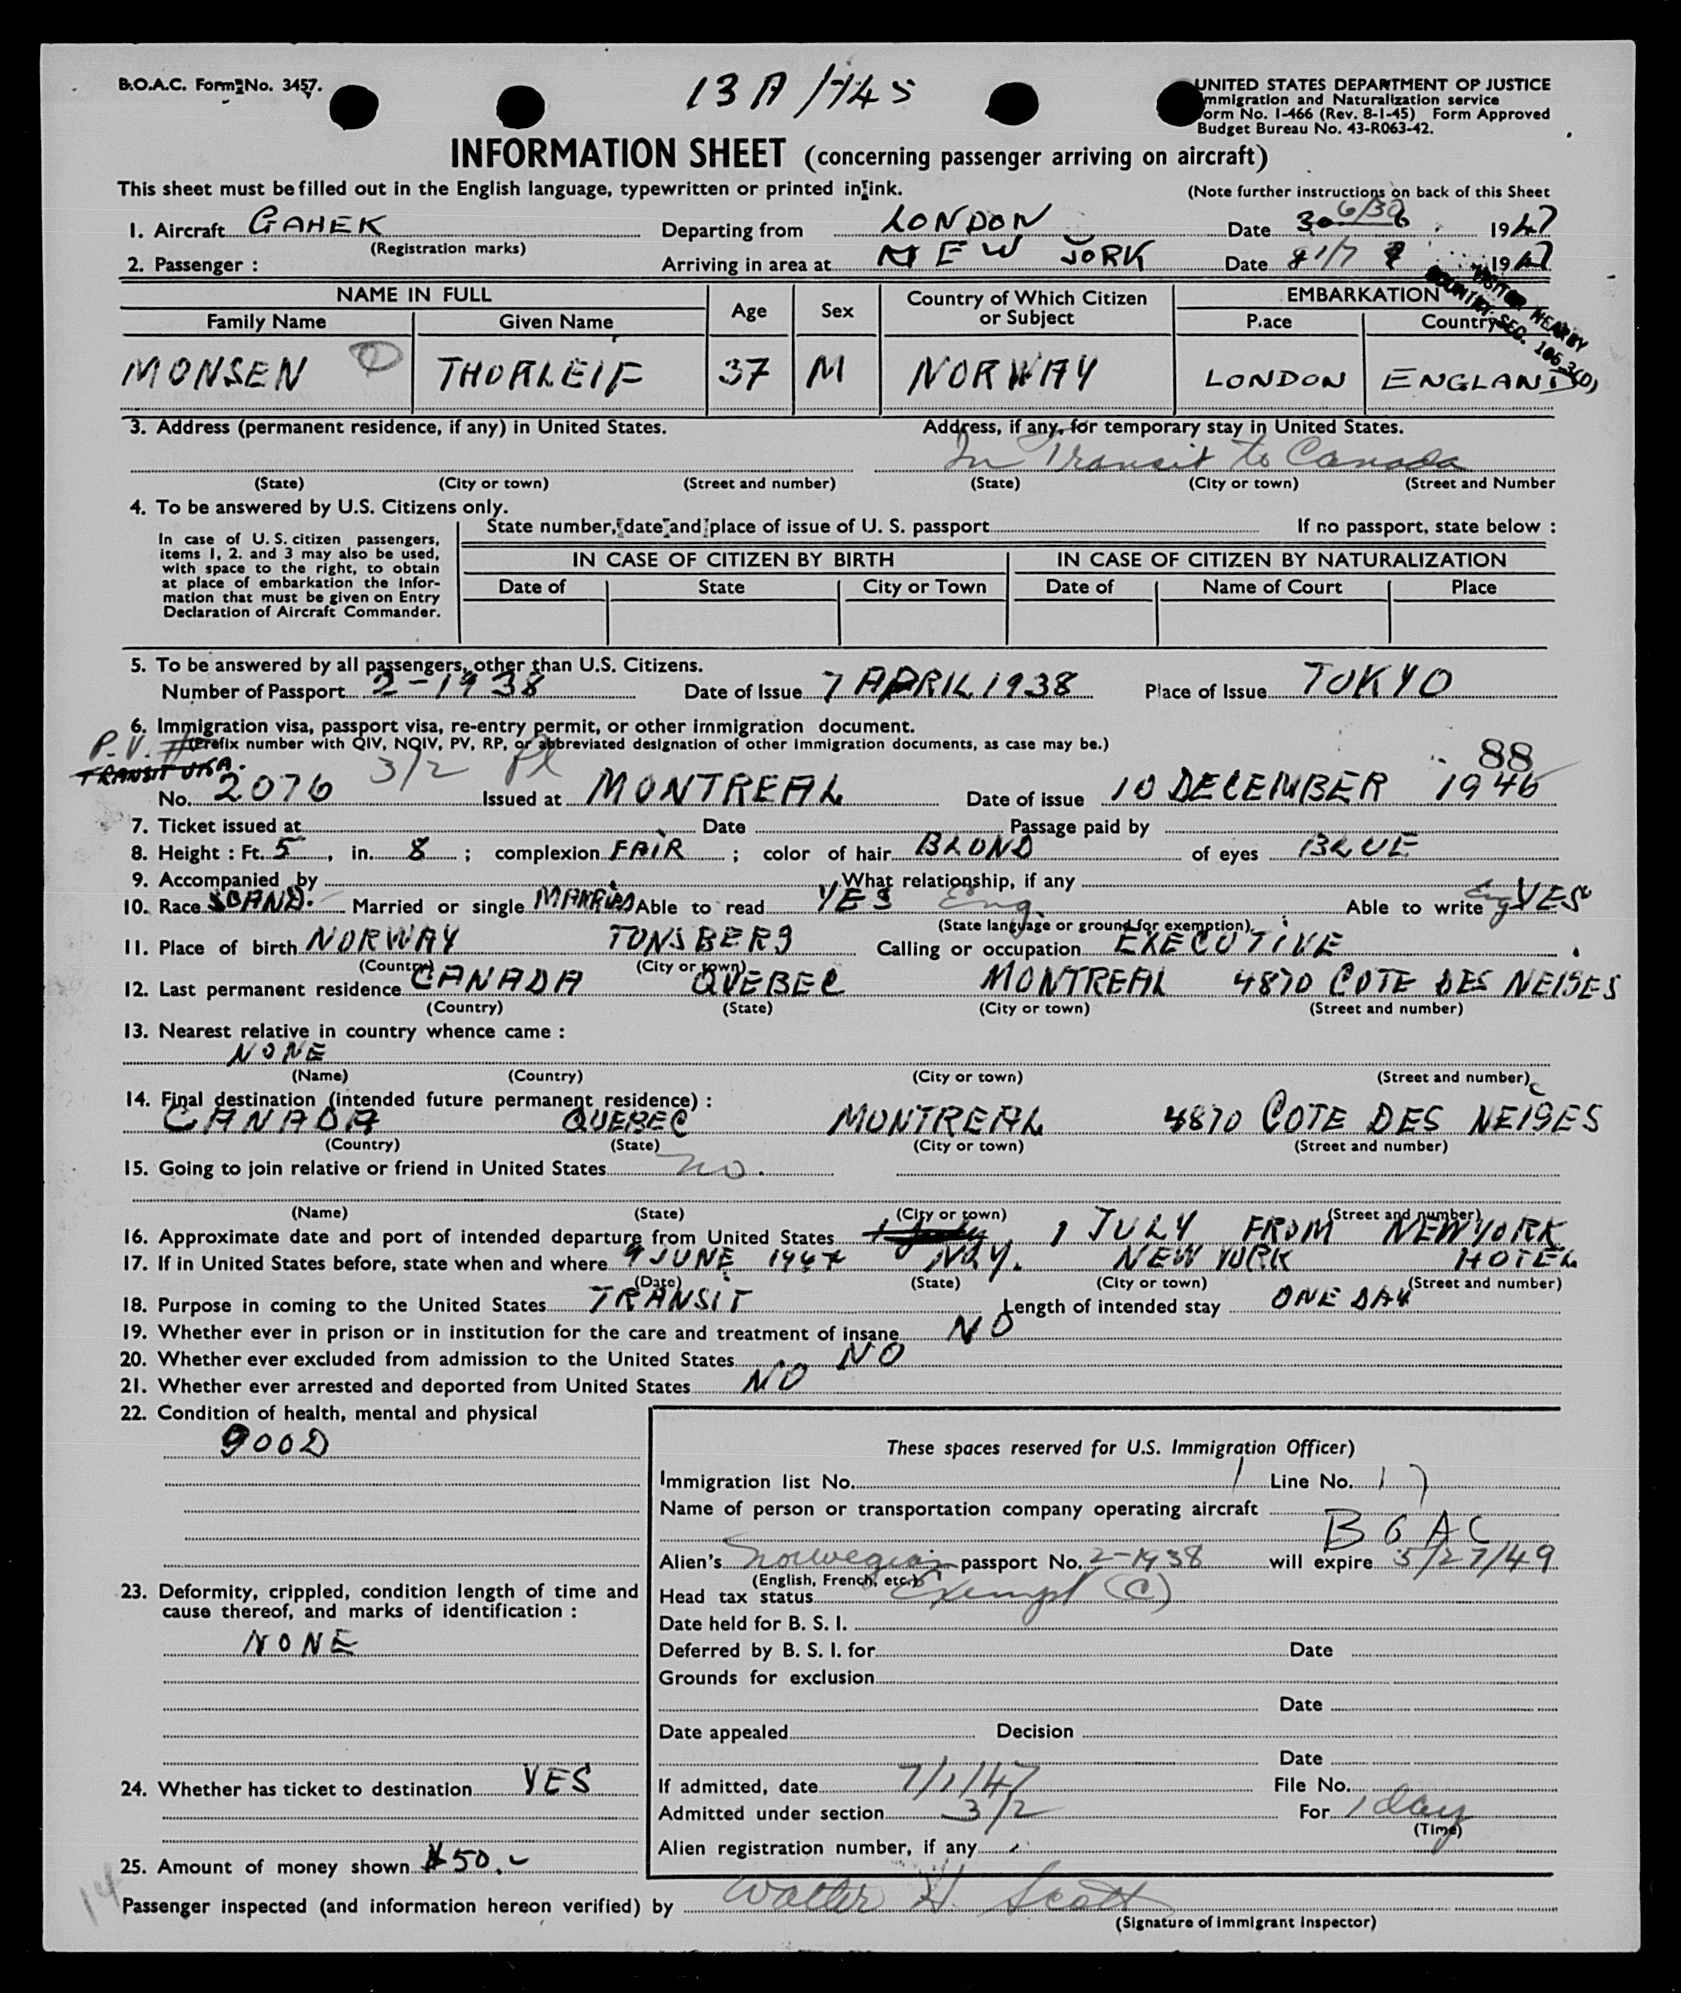 B.O.A.C. Form No. 3457.
13A/745
UNITED STATES DEPARTMENT OF JUSTICE
Immigration and Naturalization service
Form No. I-466 (Rev. 8-1-45) Form Approved
Budget Bureau No. 43-R063-42.
INFORMATION SHEET (concerning passenger arriving on aircraft)
This sheet must be filled out in the English language, typewritten or printed in ink.
(Note further instructions on back of this Sheet
1. Aircraft GAHEK Departing from LONDON Date 30 6 6/30 1947
(Registration marks)
2. Passenger : Arriving in area at NEW YORK Date 1/7 1947
VISITOR NEARBY
COUNTRY SEC. 106.3(D)
NAME IN FULL Age Sex Country of Which Citizen or Subject EMBARKATION
Family Name Given Name P.ace Country
MONSEN THORLEIF 37 M NORWAY LONDON ENGLAND
3. Address (permanent residence, if any) in United States. Address, if any, for temporary stay in United States.
In Transit to Canada
(State) (City or town) (Street and number) (State) (City or town) (Street and Number
4. To be answered by U.S. Citizens only.
State number, date and place of issue of U. S. passport If no passport, state below :
In case of U. S. citizen passengers,
items 1, 2. and 3 may also be used,
with space to the right, to obtain
at place of embarkation the Infor-
mation that must be given on Entry
Declaration of Aircraft Commander.
IN CASE OF CITIZEN BY BIRTH IN CASE OF CITIZEN BY NATURALIZATION
Date of State City or Town Date of Name of Court Place
5. To be answered by all passengers, other than U.S. Citizens.
Number of Passport 2-1938 Date of Issue 7 APRIL 1938 Place of Issue TOKYO
6. Immigration visa, passport visa, re-entry permit, or other immigration document.
P.V. # (Prefix number with QIV, NQIV, PV, RP, or abbreviated designation of other immigration documents, as case may be.)
TRANSIT VISA. 3/2 Pl 88
No. 2076 Issued at MONTREAL Date of issue 10 DECEMBER 1946
7. Ticket issued at Date Passage paid by
8. Height : Ft. 5, in. 8 ; complexion FAIR ; color of hair BLOND of eyes BLUE
9. Accompanied by What relationship, if any
10. Race SCAND. Married or single MARRIED Able to read YES Eng. Able to write Eng YES
(State language or ground for exemption).
11. Place of birth NORWAY TONSBERG Calling or occupation EXECUTIVE
(Country) (City or town)
12. Last permanent residence CANADA QUEBEC MONTREAL 4870 COTE DES NEIGES
(Country) (State) (City or town) (Street and number)
13. Nearest relative in country whence came :
NONE
(Name) (Country) (City or town) (Street and number)
14. Final destination (intended future permanent residence) :
CANADA QUEBEC MONTREAL 4870 COTE DES NEIGES
(Country) (State) (City or town) (Street and number)
15. Going to join relative or friend in United States no.
(Name) (State) (City or town) (Street and number)
16. Approximate date and port of intended departure from United States 1 JULY FROM NEWYORK
17. If in United States before, state when and where 9 JUNE 1947 N.Y. NEW YORK HOTEL
(Date) (State) (City or town) (Street and number)
18. Purpose in coming to the United States TRANSIT Length of intended stay ONE DAY
19. Whether ever in prison or in institution for the care and treatment of insane NO
20. Whether ever excluded from admission to the United States NO
21. Whether ever arrested and deported from United States NO
22. Condition of health, mental and physical
GOOD
23. Deformity, crippled, condition length of time and
cause thereof, and marks of identification :
NONE
24. Whether has ticket to destination YES
25. Amount of money shown $50.-
These spaces reserved for U.S. Immigration Officer)
Immigration list No. 1 Line No. 17
Name of person or transportation company operating aircraft
BOAC
Alien's Norwegian passport No. 2-1938 will expire 5/27/49
(English, French, etc.)
Head tax status Exempt (C)
Date held for B. S. I.
Deferred by B. S. I. for Date
Grounds for exclusion
Date
Date appealed Decision
Date
If admitted, date 7/1/47 File No.
Admitted under section 3/2 For 1 day
(Time)
Alien registration number, if any
14
Passenger inspected (and information hereon verified) by Walter H. Scott
(Signature of immigrant Inspector)